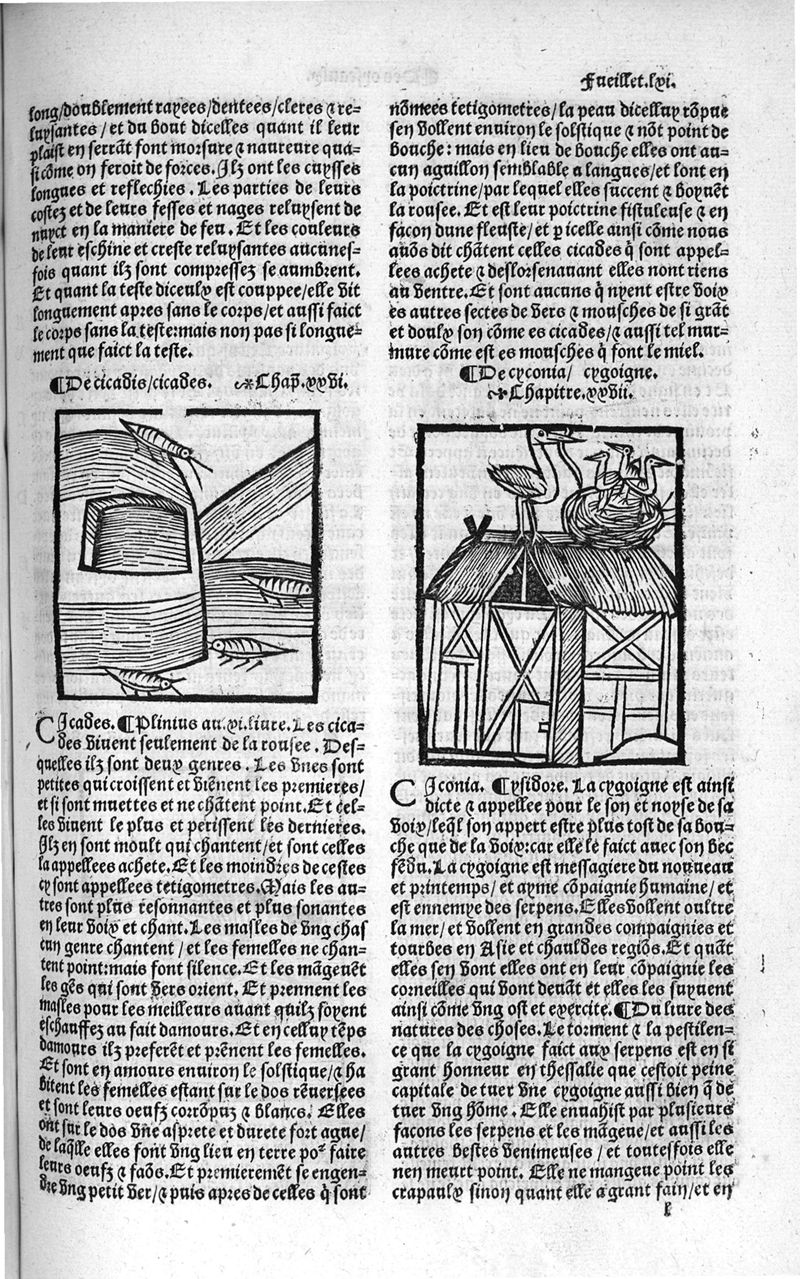 Fueillet.lxi.
long/doublement rayees/dentees/cleres ⁊ re-
luysantes/et du bout dicelles quant il leur
plaist en serrãt font morsure ⁊ naureure qua-
si cõme on feroit de forces. Jlz ont les cuysses
longues et reflechies. Les parties de leurs
costez et de leurs fesses et nages reluysent de
nuyct en la maniere de feu. Et les couleurs
de leur eschine et creste reluysantes aucunes-
fois quant ilz sont compressez se aumbrent.
Et quant la teste diceulx est couppee/elle vit
longuement apres sans le corps/et aussi faict
le corps sans la teste:mais non pas si longue-
ment que faict la teste.
¶De cicadis/cicades. Chap̃.xxvi.
CJcades.¶Plinius au.xi.liure.Les cica-
des viuent seulement de la rousee. Des-
quelles ilz sont deux genres. Les vnes sont
petites qui croissent et viẽnent les premieres/
et si sont muettes et ne chãtent point.Et cel-
les viuent le plus et perissent les dernieres.
Jlz en sont moult qui chantent/et sont celles
la appellees achete.Et les moindres de cestes
cy sont appellees tetigometres.Mais les au-
tres sont plus resonnantes et plus sonantes
en leur voix et chant.Les masles de vng chas
cun genre chantent/et les femelles ne chan-
tent point:mais font silence.Et les mãgeuẽt
les gẽs qui sont vers orient. Et prennent les
masles pour les meilleurs auant quilz soyent
eschauffez au fait damours.Et en celluy tẽps
damours ilz preferẽt et prẽnent les femelles.
Et sont en amours enuiron le solstique/⁊ ha
bitent les femelles estant sur le dos rẽuersees
et sont leurs oeufz corrõpuz ⁊ blancs. Elles
ont sur le dos vñe asprete et durete fort ague/
de laq̃lle elles font vng lieu en terre poʳ faire
leurs oeufz ⁊ faõs.Et premieremẽt se engen-
dre vng petit ver/⁊ puis apres de celles q̃ sont
nõmees tetigometres/la peau dicelluy rõpue
sen vollent enuiron le solstique ⁊ nõt point de
bouche: mais en lieu de bouche elles ont au-
cun aguillon semblable a langues/et lont en
la poictrine/par lequel elles succent ⁊ boyuẽt
la rousee. Et est leur poictrine fistuleuse ⁊ en
facon dune fleuste/et p̱ icelle ainsi cõme nous
auõs dit chãtent celles cicades q̃ sont appel-
lees achete ⁊ deslorsenauant elles nont riens
au ventre.Et sont aucuns q̃ nyent estre voix
es autres sectes de vers ⁊ mousches de si grãt
et doulx son cõme es cicades/⁊ aussi tel mur-
mure cõme est es mousches q̃ font le miel.
¶De cyconia/ cygoigne.
Chapitre.xxvii.
CJconia. ¶ysidore. La cygoigne est ainsi
dicte ⁊ appellee pour le son et noyse de sa
voix/leq̃l son appert estre plus tost de sa bou-
che que de la voix:car elle le faict auec son bec
fẽdu.La cygoigne est messagiere du nouueau
et printemps/et ayme cõpaignie humaine/et
est ennemye des serpens.Elles vollent oultre
la mer/et vollent en grandes compaignies et
tourbes en Asie et chauldes regiõs.Et quãt
elles sen vont elles ont en leur cõpaignie les
corneilles qui vont deuãt et elles les suyuent
ainsi cõme vng ost et exercite.¶Du liure des
natures des choses.Le torment ⁊ la pestilen-
ce que la cygoigne faict aux serpens est en si
grant honneur en thessalie que cestoit peine
capitale de tuer vñe cygoigne aussi bien q̃ de
tuer vng hõme. Elle enuahist par plusieurs
facons les serpens et les mãgeue/et aussi les
autres bestes venimeuses/et toutesfois elle
nen meurt point. Elle ne mangeue point les
crapaulx sinon quant elle a grant fain/et en